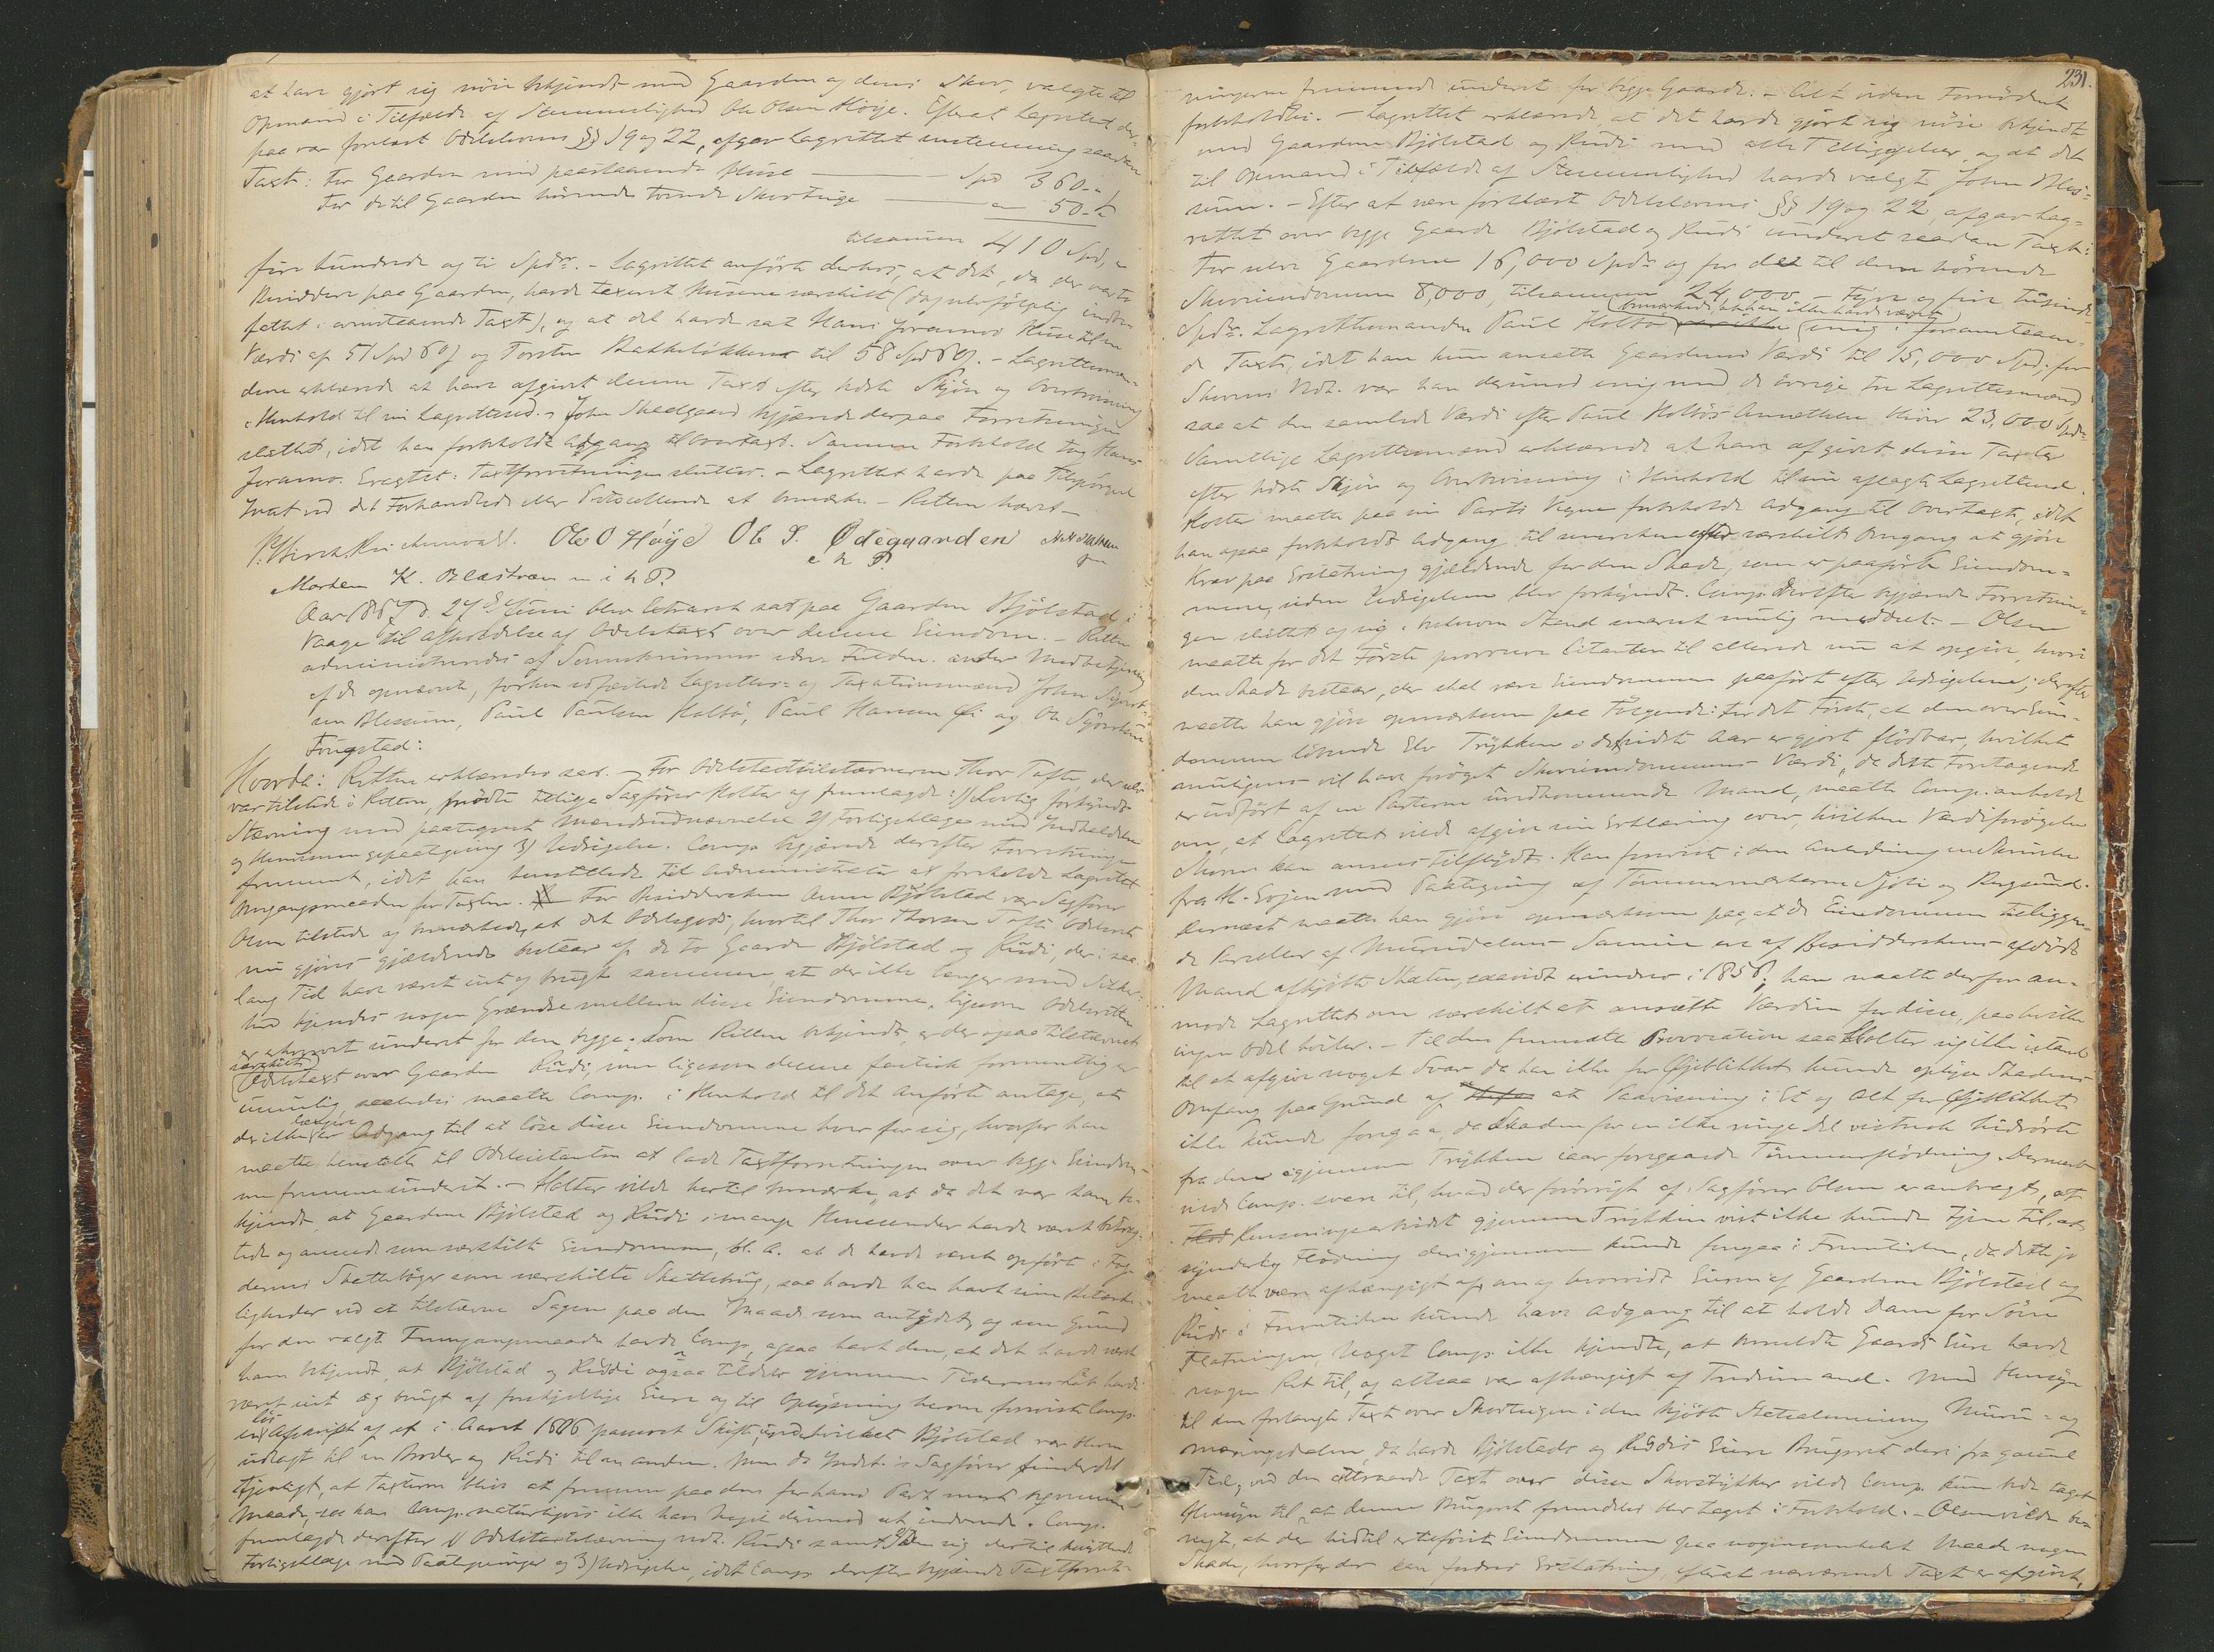 at have gjort sig nöie bekjendt med Gaarden og dens Skov, valgte til
Opmand i Tilfælde af Stemmelighed Ole Olsen Höije. Efterat Lagrettet der-
paa var forelæst Odelslovens §§ 19 og 22, afgav Lagrettet enstemmig saadan
Taxt: For Gaarden med paastaaende Huse Spd 360 "
For de til Gaarden hörende Skovteige " 50
tilsammen 410 Spd,
fire hundrede og ti Spdr. - Lagrettet anförte derhos, at det, da der var to
Besiddere paa Gaarden, havde taxeret Husene særskilt (dog selvfölgelig indbe-
fattet i ovenstaaende Taxt), og at det havde sat Hans Joramos Huse til en
Værdi af 51 Spd 60 og Torsten Bakkelökkens til 58 Spd 60. - Lagrettesmæn-
dene erklærede at have afgivet denne Taxt efter bedste Skjön og Overbevisning
i Henhold til sin Lagrettesed. John Skeelgaard begjærede derpaa Forretningen
sluttet, idet han forbeholdt Adgang til Overtaxt. Samme Forbehold tog Hans
Joramo. Eragtet: Taxtforretningen sluttes. - Lagrettet havde paa Tilspörgsel
Intet ved det Forhandlede eller Protocollerede at bemærke. - Retten hævet -
P. Birch Reichenwald. Ole O Höije Ole S. Ödegaarden
m h P.
Morten K. Blæstren m i h P
Aar 1867 d. 27de Juni blev Extraret sat paa Gaarden Bjölstad i
Vaage til Afholdelse af Odelstaxt over denne Eiendom. - Retten
administreredes af Sorenskriverens edsv. Fuldm. under Medbetjening
af de opnævnte, forhen edfæstede Lagrettes- og Taxationsmænd John Sjurd-
sen Blessum, Paul Paulsen Holbö, Paul Hansen Öi og Ole Sjörsen
Fougstad:
Hvorda: Retten erklæredes sat. - For Odelstaxtcitanten Thor Tofte, der selv
var tilstede i Retten, mödte tillige Sagförer Holter og fremlagde: 1) Lovlig forkyndt
Stævning med paategnet Mændsudnævnelse 2) Forligsklage med Indkaldelse
og Henvisningspaategning 3) Udsigelse. Comp. begjærede derefter Forretningen
fremmet, idet han henstillede til Administrator at foreholde Lagrettet
Omgangsmaaden for Taxten. For Besiddersken Anne Bjölstad var Sagförer
Olsen tilstede og bemærkede, at det Odelsgods, hvortil Thor Thorsen Tofte Odelsret
nu gjöres gjældende bestaar af de to Gaarde Bjölstad og Rudi, der i saa
lang Tid have været eiet og brugt sammen, at der ikke længer med Sikker-
hed kjendes nogen Grændse mellem disse Eiendomme, ligesom Odelsretten
er erhvervet underet for dem begge. Som Retten bekjendt, er der ogsaa tilstævnet
særskilt
Odelstaxt over Gaarden Rudi, men ligesom denne factisk formentlig er
umulig, saaledes maatte Comp. i Henhold til det Anförte antage, at
længere
der ikke er Adgang til at löse disse Eiendomme hver for sig, hvorfor han
maatte henstille til Odelscitanten at lade Taxtforretningen over begge Eiendom-
me fremme underet. - Holter vilde hertil bemærke, at da det var ham be-
kjendt, at Gaardene Bjölstad og Rudi i mange Henseender havde været betrag-
tede og ansede som særskilte Eiendomme, bl. A. at de havde været opfört i Fog-
dernes Skatteböger som særskilte Skattebrug, saa havde han havt sine Betænke-
ligheder ved at tilstævne Sagen paa den Maade som antydet, og som Grund
for den valgte Fremgangsmaade havde Comp. ogsaa havt den, at det havde været
ham bekjendt, at Bjölstad og Ruddi ogsaa tildels gjennem Tidernes Löb havde
været eiet og brugt af forskjellige Eiere og til Oplysning herom foreviste Comp.
en Afskrift af et i Aaret 1686 passeret Skifte, ved hvilket Bjölstad var bleven
udlagt til en Broder og Rudi til en anden. Men da Indst.s Sagförer finder det
tjenligt, at Taxterne blive at fremme paa den forhaand værende
Maade, saa har Comp. naturligvis ikke har noget derimod at indvende. Comp.
fremlagde derefter 1) Odelstaxtstævning vedk. Ruidi samt 2) den sig dertil knyttede
Forligsklage med Paategninger og 3) Udsigelse, idet Comp. derefter begjærede Taxtforret-
231.
ningerne fremmede underet for begge Gaarde. - Alt videre Fornödent
forbeholdtes. - Lagrettet erklærede, at det havde gjort sig nöie bekjendt
med Gaardene Bjölstad og Ruidi med alle Tilliggelser, og at det
til Opmand i Tilfælde af Stemmelighed havde valgt John Bles-
sum. - Efter at være forelæst Odelslovens §§ 19 og 22, afgav Lag-
rettet over begge Gaarde Bjölstad og Ruidi underet saadan Taxt:
For selve Gaardene 16,000 Spdr og for de til dem hörende
Skoveiendomme 8,000, tilsammen 24,000 - Fyre og fire tusinde
Spdr. Lagrettemanden Paul Holbö (bemærkede, at han ikke havde været) enig i foranstaaen-
de Taxt, idet han kun ansatte Gaardenes Værdi til 15,000 Spd; for
Skovens Vedk. var han derimod enig med de övrige tre Lagrettesmænd,
saa at den samlede Værdi efter Paul Holbös Ansættelse bliver 23,000 Spdr.
Samtlige Lagrettesmænd erklærede at have afgivet disse Taxter
efter bedste Skjön og Overbevisning i Henhold til sin aflagte Lagretteed.
Holter maatte paa sin Parts Vegne forbeholde Adgang til Overtaxt, idet
han ogsaa forbeholdt Adgang til særskilt Omgang at gjöre
Krav paa Erstatning gjældende for den Skade, som er paafört Eiendom-
mene, siden Udsigelsen blev forkyndt. Comp. derefter begjærede Forretnin-
gen sluttet og sig i beskreven Stand snarest mulig meddelt. - Olsen
maatte for det Förste provocere Citanten til allerede nu at opgive, hvori
den Skade bestaar, der skal være Eiendommene paafört efter Udsigelsen; derefter
maatte han gjöre opmærksom paa Fölgende: For det Förste, at den over Eien-
dommen löbende Elv Trykken i de sidste Aar er gjort flödbar, hvilket
muligens vil have foröget Skoveiendommens Værdi, da dette Foretagende
er udfört af en Parterne uvedkommende Mand, maatte Comp. anholde
om, at Lagrettet vilde afgive sin Erklæring over, hvilken Værdiforögelse
Skoven kan ansees tilflydt. Han foreviste i den Anledning en Skrivelse
fra H. Svejen med Paategning af Tömmermærkerne Sjöli og Bergseund.
Dernæst maatte han gjöre opmærksom paa, at de Eiendommen tilliggen-
de Parceller af Murudalens Sameie ere af Besidderskens afdöde
Mand afkjöbt Staten, saavidt erindres i 1856; han maatte derfor an-
mode Lagrettet om særskilt at ansætte Værdien for disse, paa hvilke
ingen Odel hviler. - Til den fremsatte Provocation saa Holter sig ikke istand
til at afgive noget Svar da han ikke for Öieblikket kunde oplyse Skadens
Omfang paa Grund af at Paavisning i Et og Alt for Öieblikket
ikke kunde foregaa, da Skaden for en ikke ringe Del vistnok hidrörte
fra den igjennem Trykken iaar foregaaede Tömmerflödning. Dernæst
vilde Comp. svare til, hvad der forövrigt af Sagförer Olsen er anbragt, at
Rensningsarbeidet gjennem Trykken vist ikke kunde tjene til, at
synderlig Flödning derigjennem kunde foregaa i Fremtiden, da dette jo
maatte være afhængigt af, om og hvorvidt Eieren af Gaardene Bjölstad og
Ruidi i Fremtiden kunde have Adgang til at holde Dam for Söre
Flatningen, Noget Comp. ikke kjendte, at bemeldte Gaards Eiere havde
nogen Ret til, og altsaa var afhængigt af Tredie Mand. Med Hensyn
til den forlangte Taxt over Skovteigen i den kjöbte Statsalmenning Muru- og
da havde Bjölstads og Ruidis Eiere Brugsret deri fra gammel
Tid, ved den attraaede Taxt over disse Skovstykker vilde Comp. kun bede taget
Hensyn til, at denne Brugsret fremdeles blev taget i Forbehold. - Olsen vilde be-
nægte, at der hidtil er tilföiet Eiendommene paa nogensomhelst Maade nogen
Skade, hvorfor der kan fordres Erstatning, efterat nærværende Taxt er afgivet,